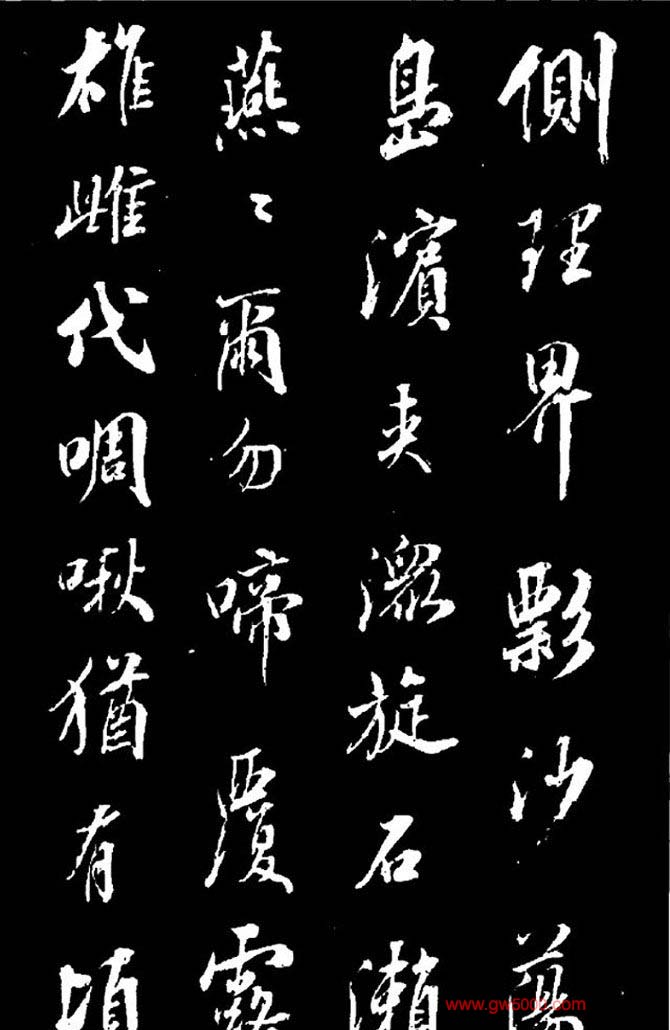 側理界彯沙蕩
島濱夾潨旋石瀨
燕〻爾勿啼覆露
雄雌代啁啾猶有頃
www.gw5002.com